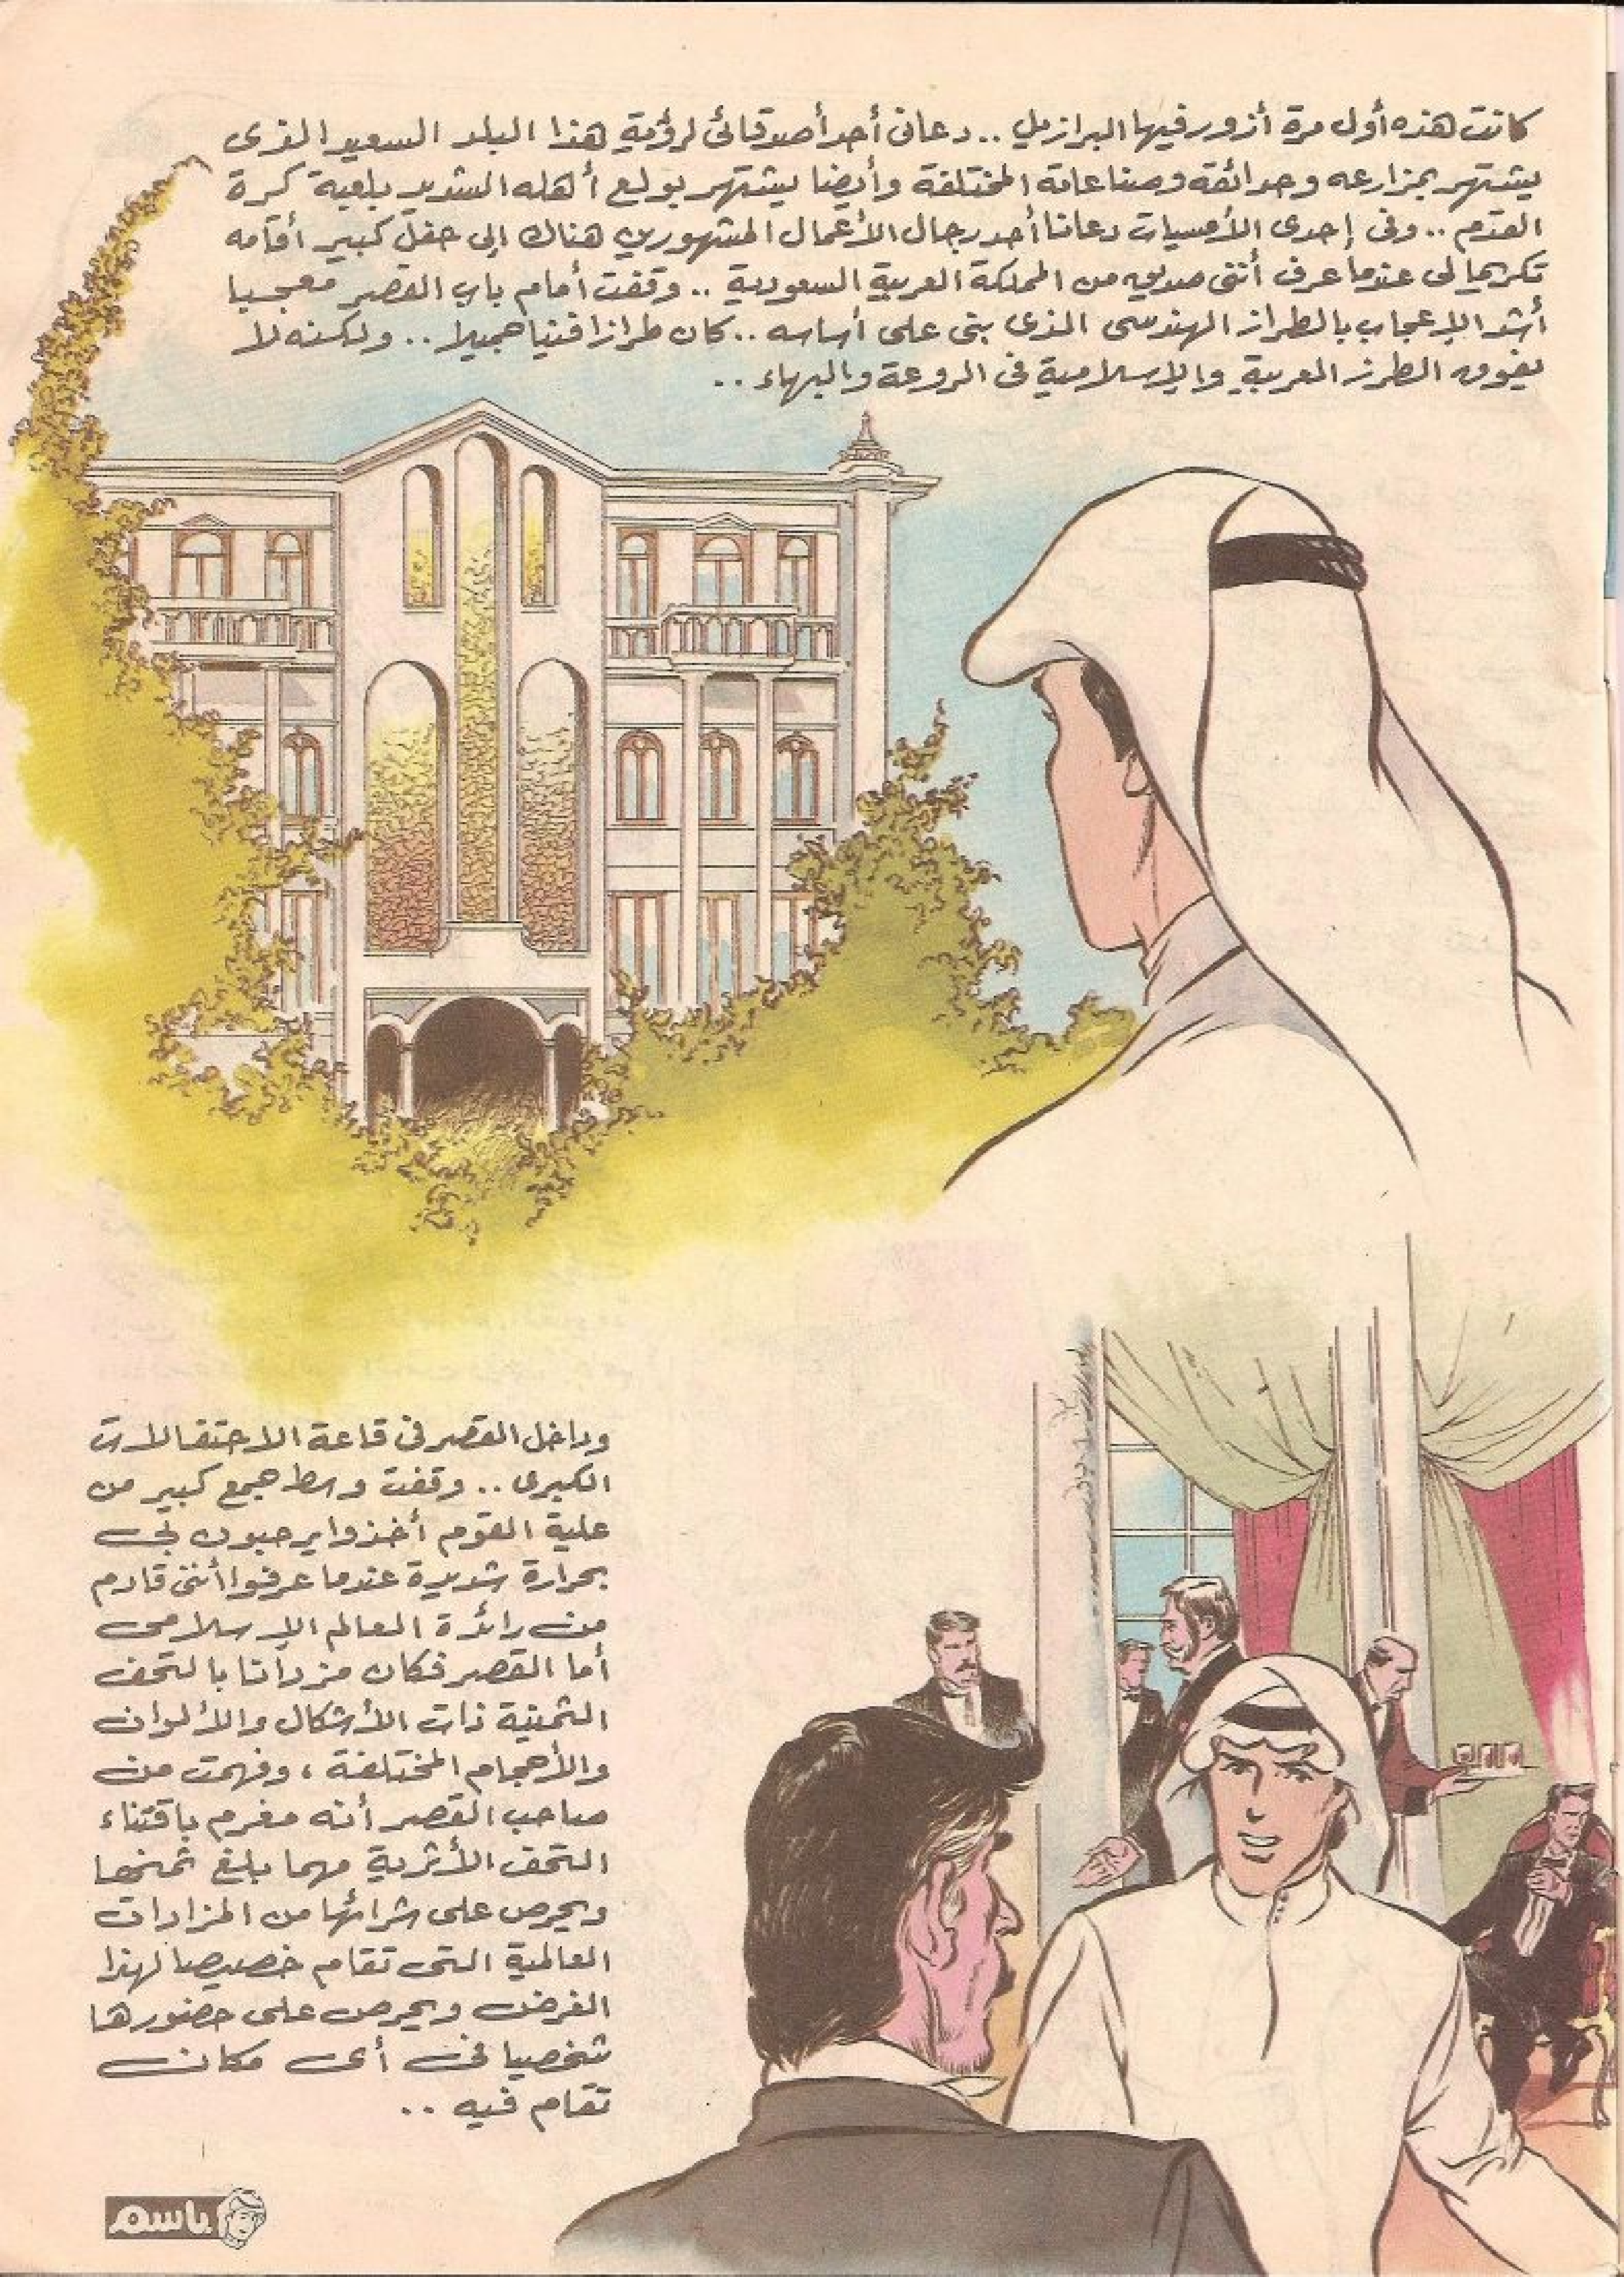 كانت هذه أول مرة أزور فيها البرازيل .. دعانى أحد أصدقائى لرؤية هذا البلد السعيد الذى
يشتهر بمزارعه وحدائقه وصناعاته المختلفة وأيضا يشتهر بولع أهله الشديد بلعبة كرة
القدم .. وفى إحدى الأمسيات دعانا أحد رجال الأعمال المشهورين هناك إلى حفل كبير أقامه
تكريما لى عندما عرف أننى صديق من المملكة العربية السعودية .. وقفت أمام باب القصر معجبا
أشد الإعجاب بالطراز الهندسى الذى بنى على أساسه .. كان طرازا فنيا جميلا .. ولكنه لا
يفوق الطرز العربية والإسلامية فى الروعة والبهاء ..
وداخل القصر فى قاعة الاحتفالات
الكبرى .. وقفت وسط جمع كبير من
علية القوم أخذوا يرحبون بى
بحرارة شديدة عندما عرفوا أننى قادم
من رائدة العالم الإسلامى
أما القصر فكان مزدانا بالتحف
الثمينة ذات الأشكال والألوان
والأحجام المختلفة ، وفهمت من
صاحب القصر أنه مغرم باقتناء
التحف الأثرية مهما بلغ ثمنها
ويحرص على شرائها من المزادات
العالمية التى تقام خصيصا لهذا
الغرض ويحرص على حضورها
شخصيا فى أى مكان
تقام فيه ..
باسم